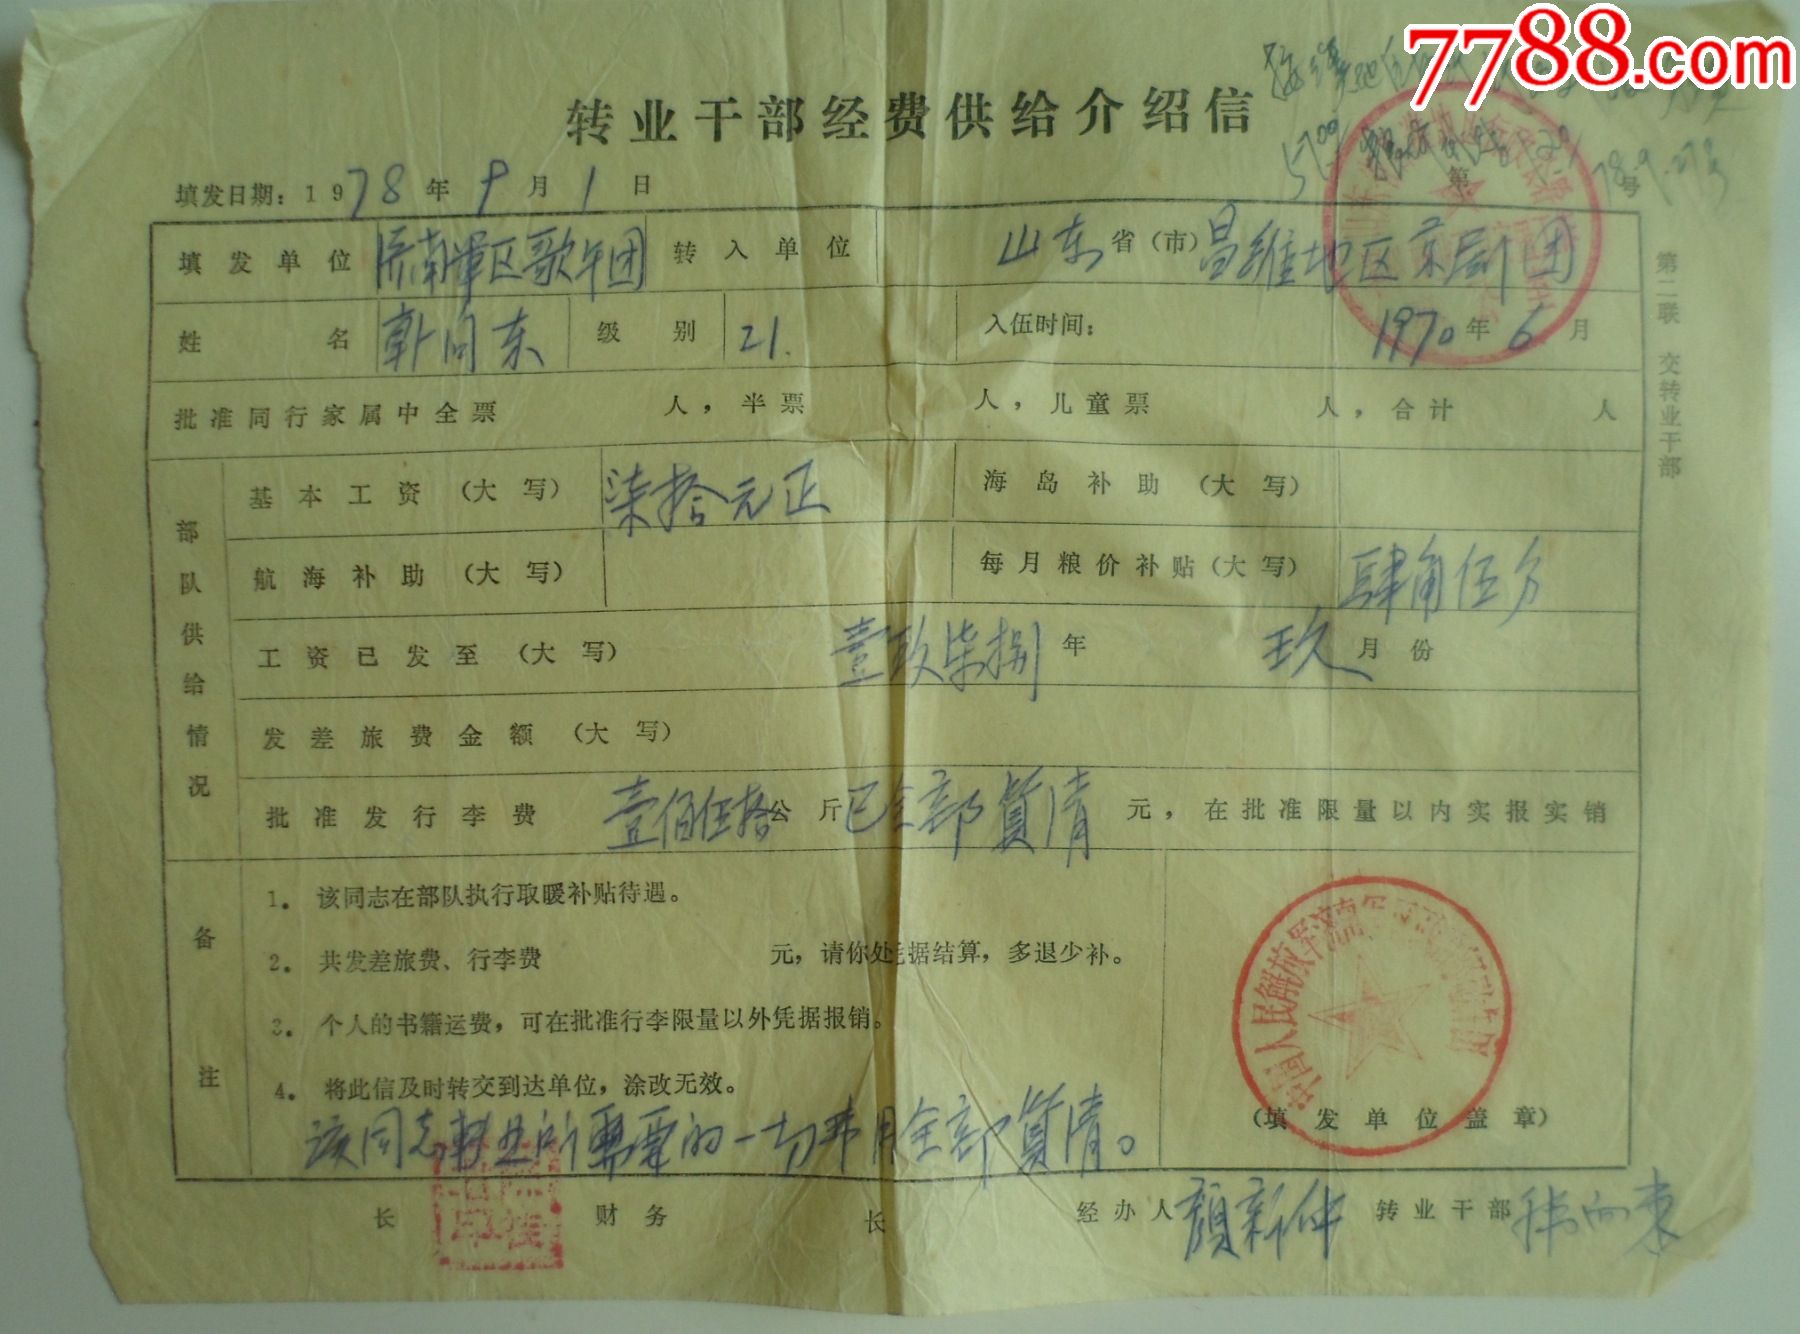 7788.com
转业干部经费供给介绍信
填发日期：1978年9月1日 第 号
78.9.27
填发单位 济南军区歌午团 转入单位 山东省（市）昌维地区京剧团
姓名 韩向东 级别 21. 入伍时间： 1970年6月
批准同行家属中全票 人，半票 人，儿童票 人，合计 人
部队供给情况
基本工资（大写） 柒拾元正 海岛补助（大写）
航海补助（大写） 每月粮价补贴（大写） 肆角伍分
工资已发至（大写） 壹玖柒捌年 玖月份
发差旅费金额（大写）
批准发行李费 壹佰伍拾公斤 已全部算清 元，在批准限量以内实报实销
备注
1. 该同志在部队执行取暖补贴待遇。
2. 共发差旅费、行李费 元，请你处凭据结算，多退少补。
3. 个人的书籍运费，可在批准行李限量以外凭据报销。
4. 将此信及时转交到达单位，涂改无效。
该同志转业所需要的一切费用全部算清。
中国人民解放军济南军
（填发单位盖章）
长 财务 长 经办人 颜新仲 转业干部 韩向东
第二联 交转业干部